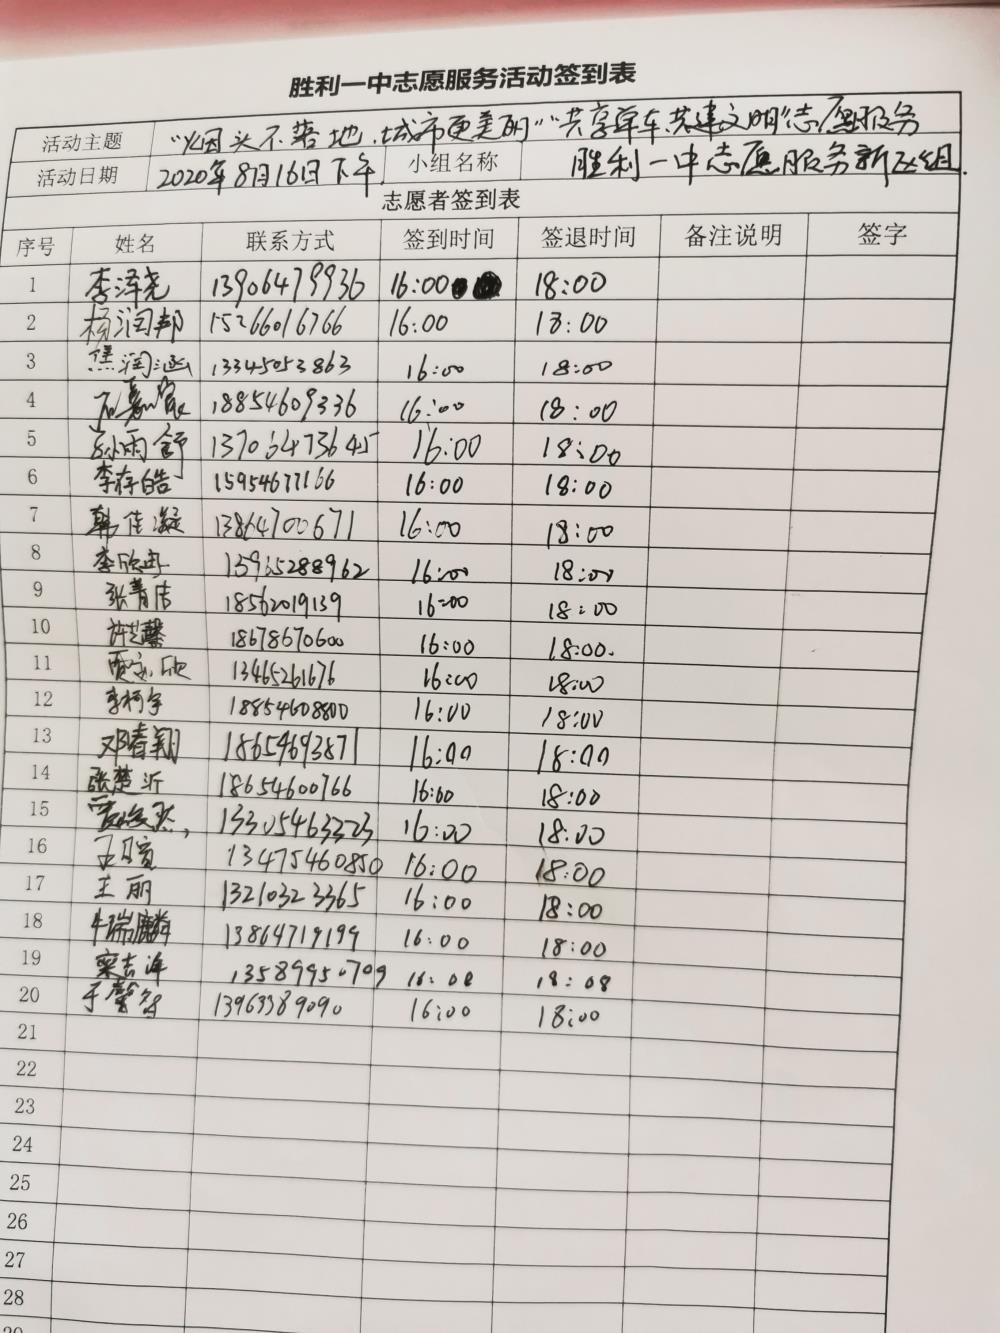 胜利一中志愿服务活动签到表
活动主题 "烟头不落地,城市更美丽""共享单车,共建文明"志愿服务
活动日期 2020年8月16日下午 小组名称 胜利一中志愿服务新区组.
志愿者签到表
序号 姓名 联系方式 签到时间 签退时间 备注说明 签字
1 李泽尧 13906479936 16:00 18:00
2 杨润邦 15266016766 16:00 18:00
3 焦润涵 13345053863 16:00 18:00
4 石嘉宸 18854609336 16:00 18:00
5 孙雨舒 13706473645 16:00 18:00
6 李存皓 15954677166 16:00 18:00
7 韩佳凝 13864700671 16:00 18:00
8 李欣冉 13965288962 16:00 18:00
9 张菁洁 18562019139 16:00 18:00
10 许芝馨 18678670600 16:00 18:00.
11 贾 欣 13465261676 16:00 18:00
12 李柯宇 18854608800 16:00 18:00
13 邓春翔 18654693871 16:00 18:00
14 张楚沂 18654600766 16:00 18:00
15 13305463323 16:00 18:00
16 13475460850 16:00 18:00
17 王丽 13210323365 16:00 18:00
18 牛瑞麟 13864719199 16:00 18:00
19 栾吉泽 13589950709 16:00 18:00
20 于馨 13963389090 16:00 18:00
21
22
23
24
25
26
27
28